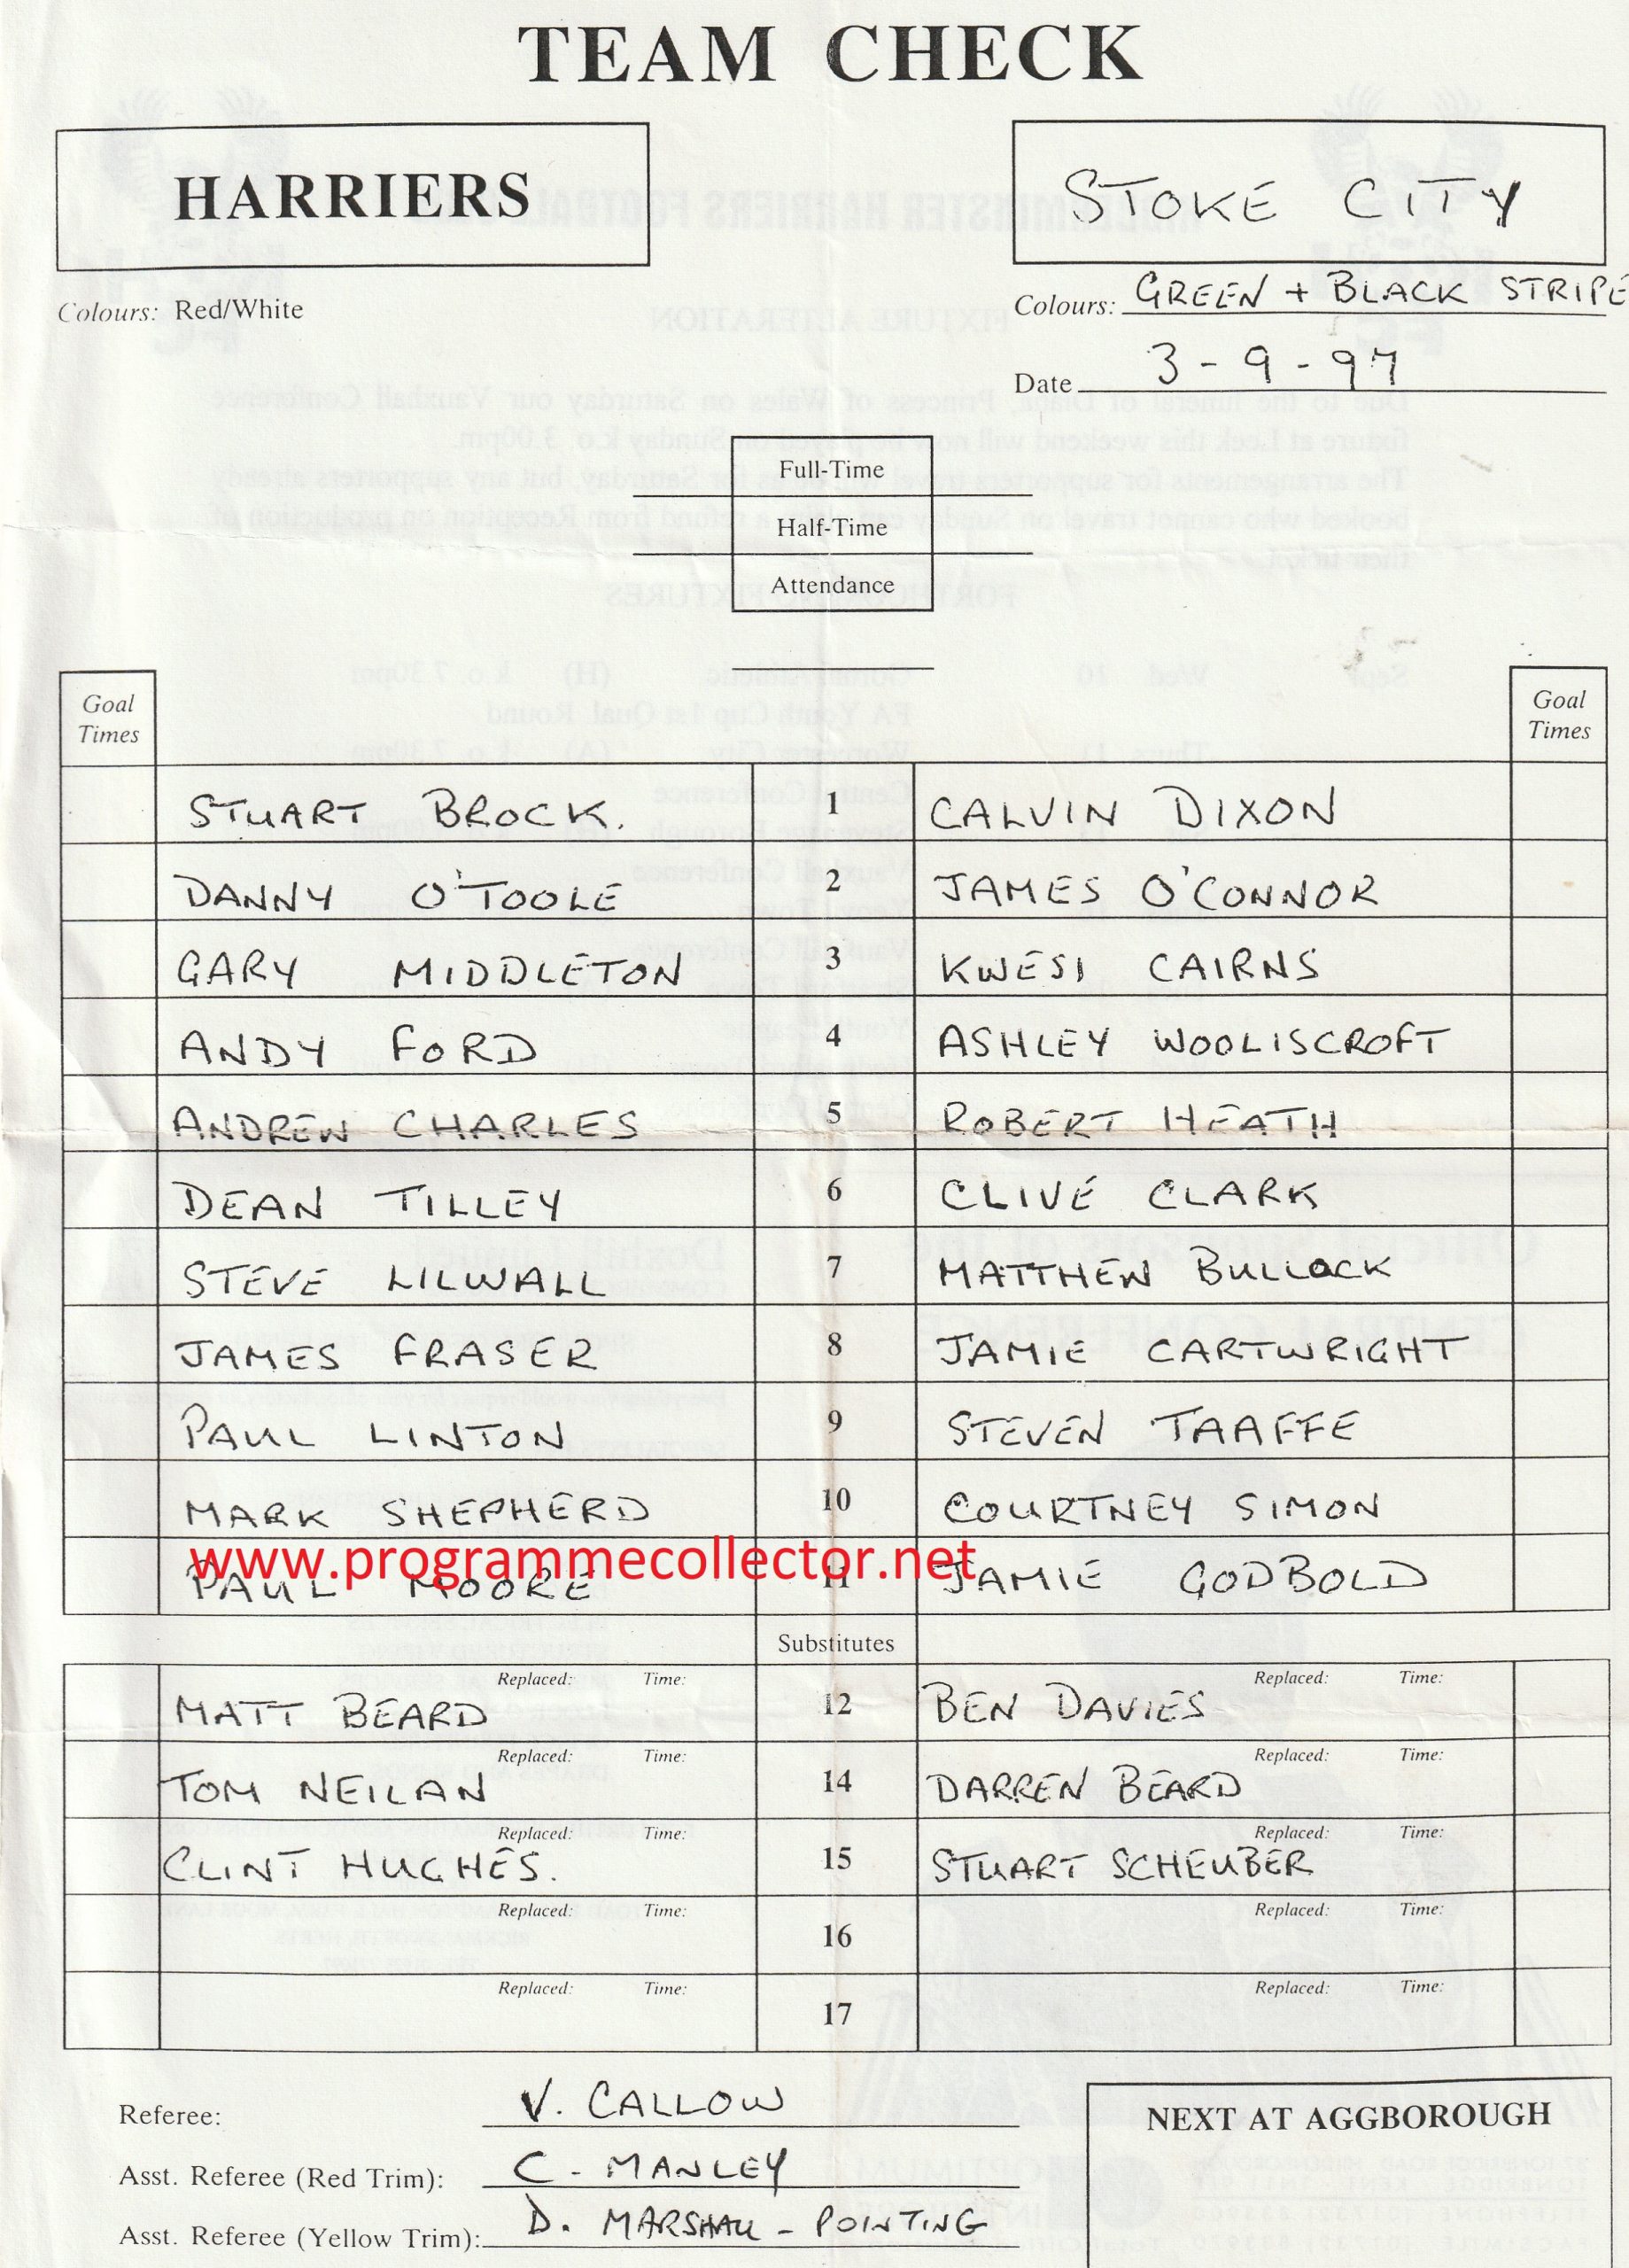 TEAM CHECK
HARRIERS STOKE CITY
Colours: Red/White Colours: GREEN + BLACK STRIPE
Date 3-9-97
Full-Time
Half-Time
Attendance
Goal Times Goal Times
STUART BROCK. 1 CALVIN DIXON
DANNY O'TOOLE 2 JAMES O'CONNOR
GARY MIDDLETON 3 KWESI CAIRNS
ANDY FORD 4 ASHLEY WOOLISCROFT
ANDREW CHARLES 5 ROBERT HEATH
DEAN TILLEY 6 CLIVE CLARK
STEVE LILWALL 7 MATTHEW BULLOCK
JAMES FRASER 8 JAMIE CARTWRIGHT
PAUL LINTON 9 STEVEN TAAFFE
MARK SHEPHERD 10 COURTNEY SIMON
www.programmecollector.net
PAUL MOORE 11 JAMIE GODBOLD
Substitutes
Replaced: Time: Replaced: Time:
MATT BEARD 12 BEN DAVIES
Replaced: Time: Replaced: Time:
TOM NEILAN 14 DARREN BEARD
Replaced: Time: Replaced: Time:
CLINT HUGHES. 15 STUART SCHEUBER
Replaced: Time: Replaced: Time:
16
Replaced: Time: Replaced: Time:
17
Referee: V. CALLOW
NEXT AT AGGBOROUGH
Asst. Referee (Red Trim): C. MANLEY
Asst. Referee (Yellow Trim): D. MARSHALL - POINTING